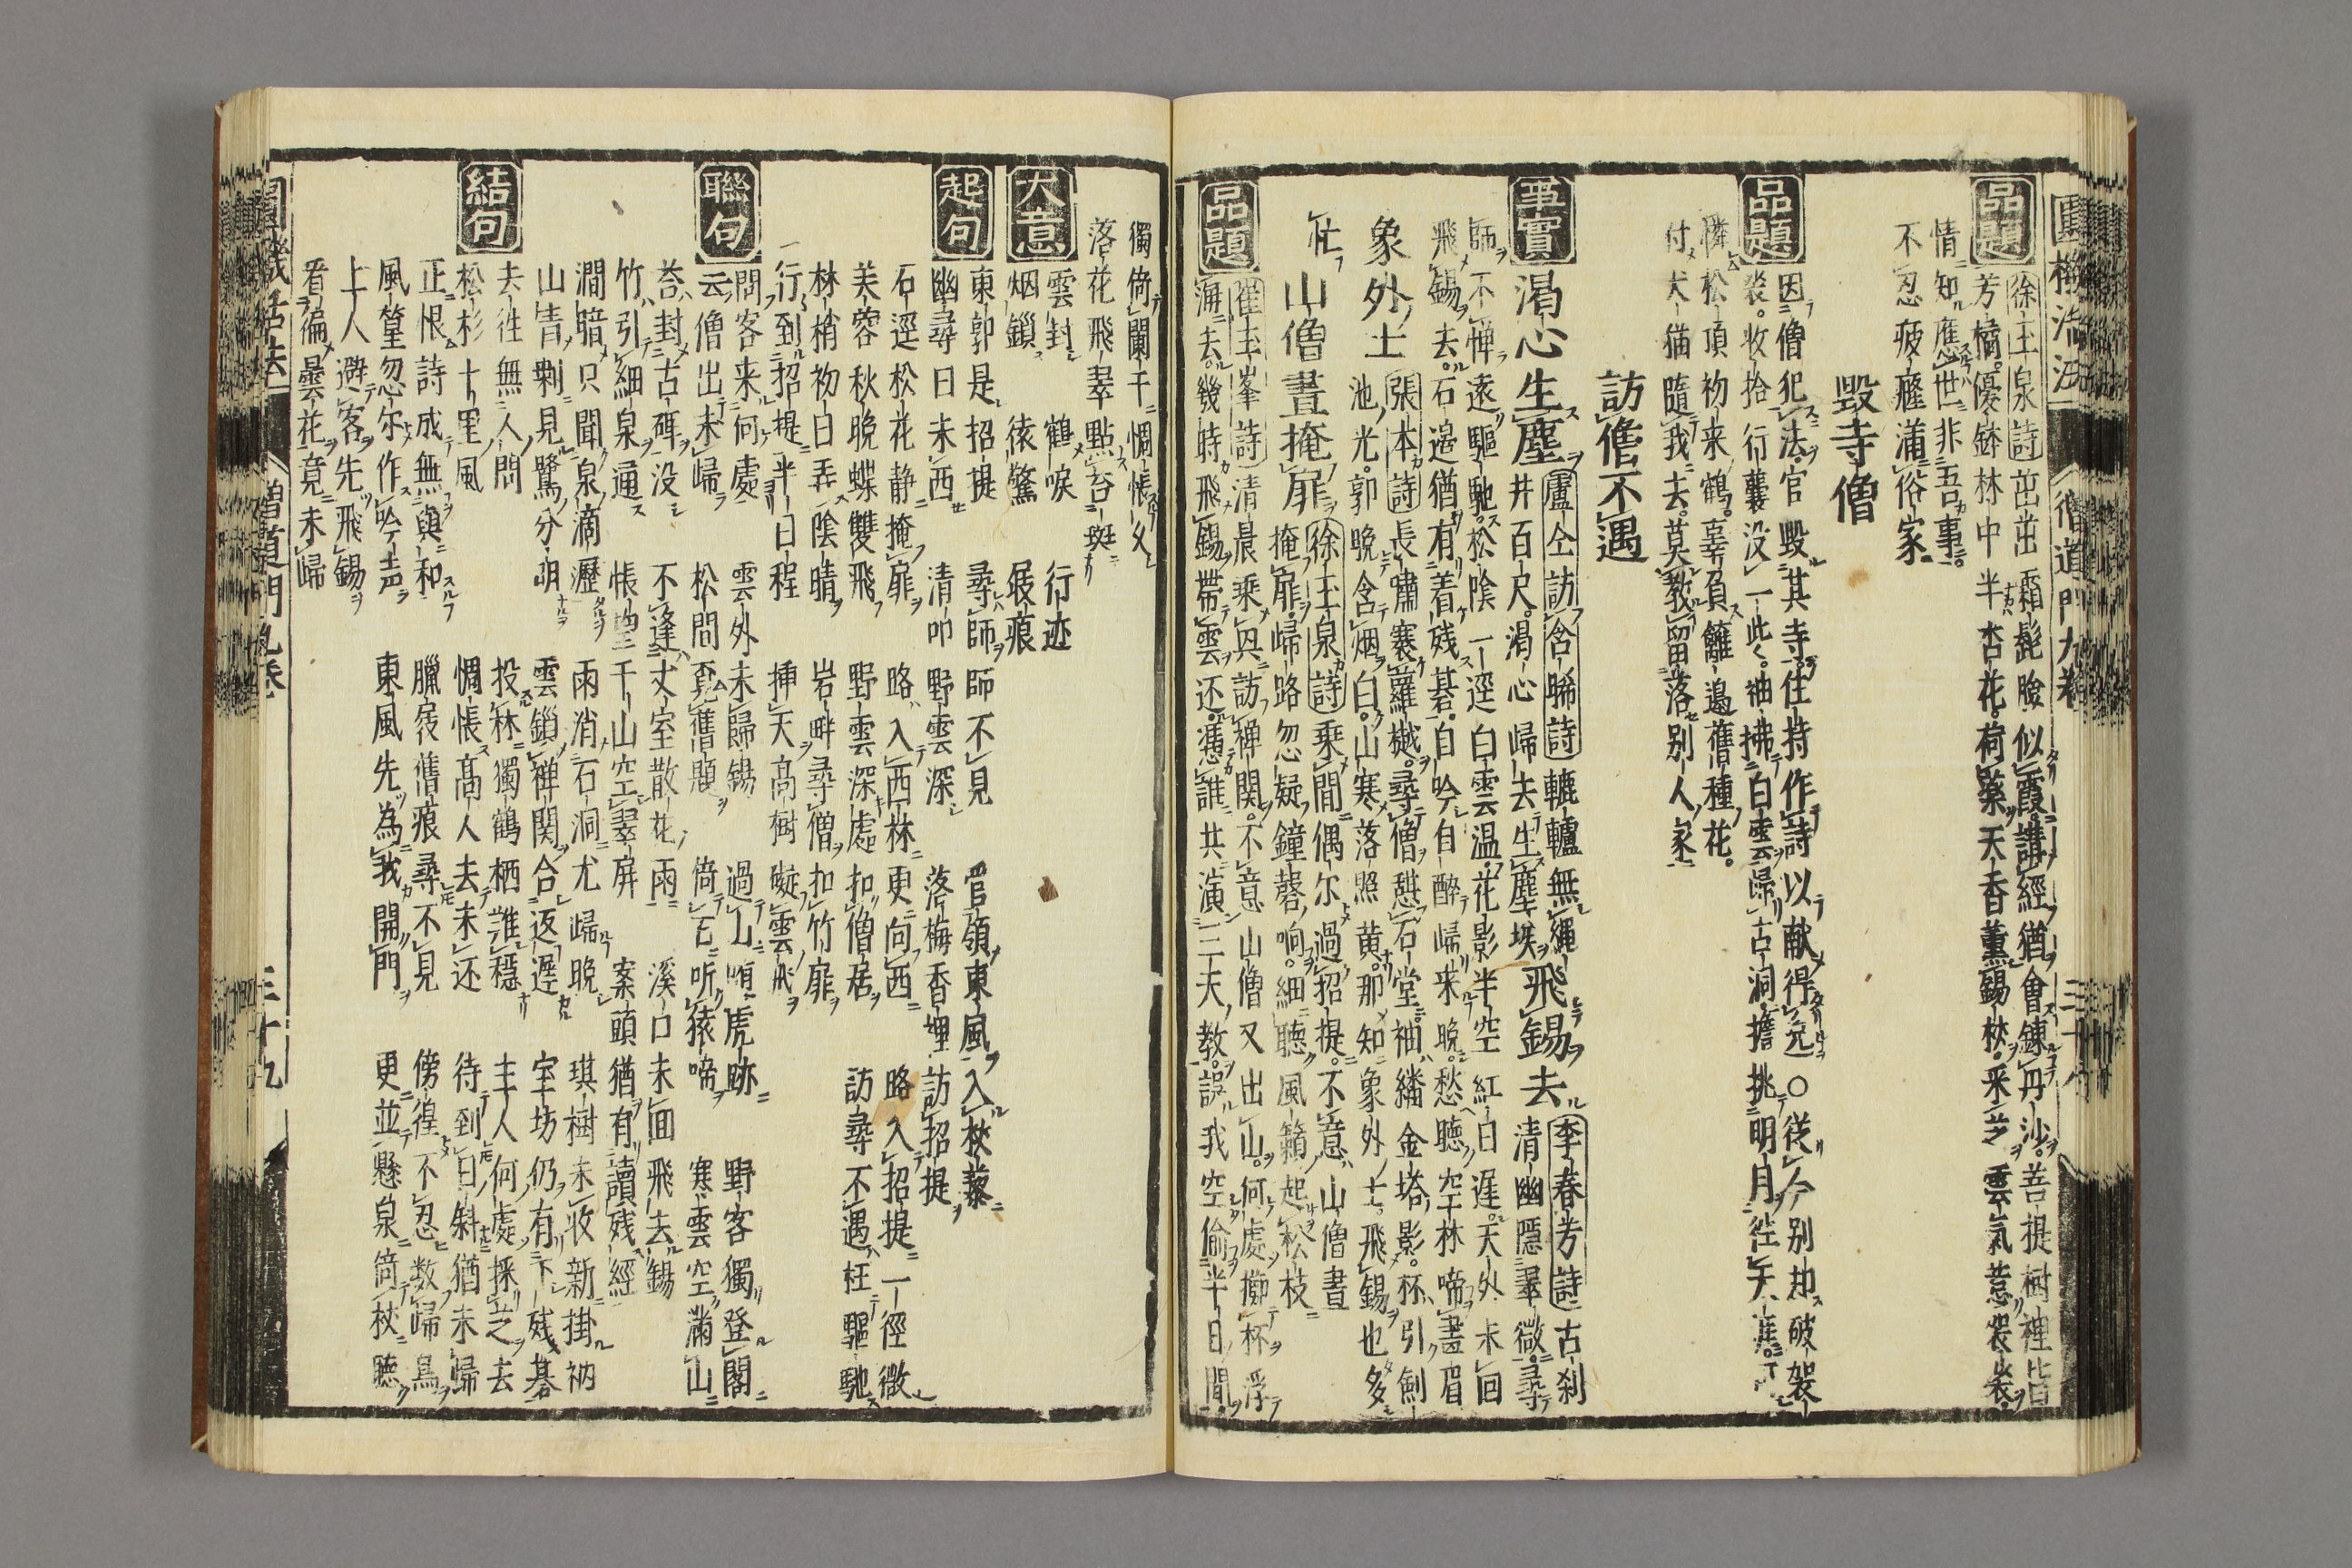 品題 徐玉泉詩 茁茁霜髭臉似霞講經猶會鍊丹沙菩提樹裡皆
芳橘優鉢林中半杏花荷蘂天香薰錫杖采芝雲氣惹袈裟
情知應世非吾事
不忍疲癃蒲俗家
毀寺僧
品題 因僧犯法官毀其寺住持作詩以献得完○從今別却破袈
裟收拾行囊没一些袖拂白雲歸古洞擔挑明月徃天涯
憐松頂初来鶴辜負籬邉舊種花
付犬猫隨我去莫教留落別人家
訪僧不遇
事實 渴心生塵 盧仝訪含晞詩 轆轤無繩
井百尺渴心歸去生塵埃 飛錫去 李春芳詩 古刹
清幽隱翠微尋
師不憚遠驅馳松陰一逕白雲温花影半空紅日遅天外未回
飛錫去石邉猶有着残棊自吟自醉歸来晩愁聽空林啼畫眉
象外士 張本詩 長嘯褰蘿樾尋僧憇石堂袖
池光郭晩含烟白山寒落照黄那知象外士飛錫也多
忙 山僧晝掩扉 徐玉泉詩 乘間偶尔過招提不意山僧晝
掩扉歸路忽疑鐘磬响細聽風籟起松枝
品題 崔玉峯詩 清晨乘興訪禅関不意山僧又出山何處擲杯浮
海去幾時飛錫帶雲还憑誰共演三天教誤我空偷半日間
獨倚闌干惆悵久
落花飛翠點苔斑
大意 雲封 鶴唳 行迹
烟鎖 猿驚 屐痕
起句 東郭是招提 尋師師不見 官嶺東風入杖藜
幽尋日未西 清叩野雲深 落梅香埋訪招提
石逕松花静掩扉 路入西林更向西 路入招提一徑微
芙蓉秋晩蝶雙飛 野雲深處扣僧居 訪尋不遇枉驅馳
林梢初白弄陰晴 岩畔尋僧扣竹扉
一行到招提半日程 揷天高樹礙雲飛
聯句 問客来何處 雲外未歸錫 過山順虎跡 野客獨登閣
云僧出未歸 松間覔舊題 倚石听猿啼 寒雲空滿山
苔封古碑没 不逢丈室散花雨 溪口未回飛去錫
竹引細泉通 悵望千山空翠屏 案頭猶有讀残經
澗暗只聞泉滴瀝 雨消石洞尤歸晩 琪樹未收新掛衲
山青剩見鷺分明 雲鎖禅関合返遅 室坊仍有下残棊
去徃無人問 投林獨鶴栖誰穩 主人何處採芝去
結句 松杉十里風 惆悵高人去未还 待到日斜猶未歸
正恨詩成無與和 臘屐舊痕尋不見 傍徨不忍数歸鳥
風篁忽尓作吟声 東風先為我開門 更並懸泉筒杖聽
上人避客先飛錫
看徧曇花竟未歸
僧道門九卷
三十九